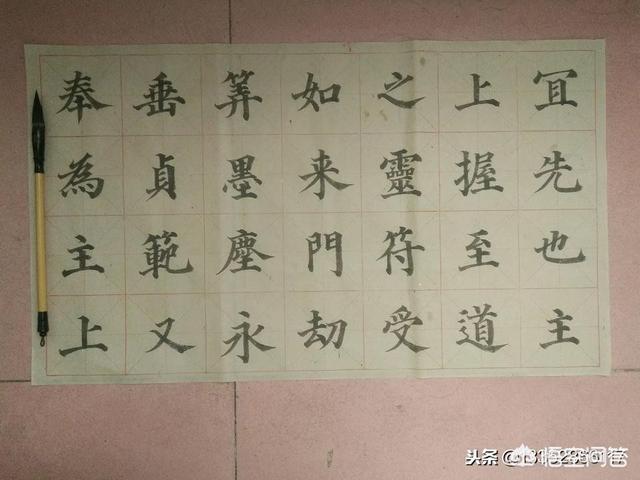 冝先也主
上握至道
之靈符受
如来門劫
筭墨塵永
垂貞範又
奉為主上
头条
悟空问答